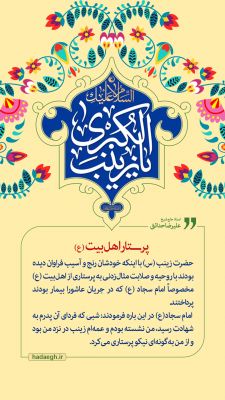 السلام علیک
یا زینب
الکبری
استاد حاج شیخ
علیرضا حدائق
پرستار اهل بیت (ع)
حضرت زینب (س) با اینکه خودشان رنج و آسیب فراوان دیده
بودند با روحیه و صلابت مثال‌زدنی به پرستاری از اهل‌بیت (ع)
مخصوصاً امام سجاد (ع) که در جریان عاشورا بیمار بودند
پرداختند.
امام سجاد(ع) در این باره فرمودند: شبی که فردای آن پدرم به
شهادت رسید، من نشسته بودم و عمه‌ام زینب در نزد من بود
و از من به‌گونه‌ای نیکو پرستاری می‌کرد.
hadaegh.ir